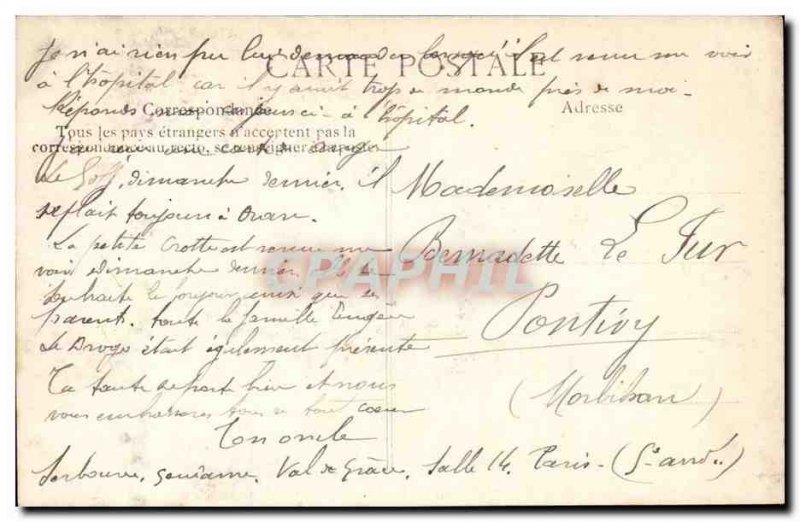 Je n'ai rien pu lui demander il est venu me voir
CARTE POSTALE
à l'hôpital car il y avait trop de monde près de moi.
Correspondance
Adresse
Réponds à l'hôpital.
Tous les pays étrangers n'acceptent pas la
correspondance au recto, se renseigner à la poste
dimanche dernier, il
se plait toujours à Oran.
Mademoiselle
Bernadette Le Fur
Pontivy
(Morbihan)
La petite est venue me
voir dimanche dernier. Elle te
souhaite le bonjour ainsi que ses
parents. toute la famille
Le Broge était également présente
Ta tante se porte bien et nous
vous embrassons tous de tout coeur
Ton oncle
Val de Grâce. Salle 14. Paris - (5e arrdt.)
CPAPHIL